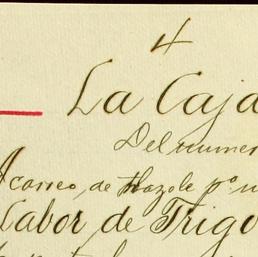 4
La Caja
Del numer
Acarreo de Hazole pº n
Labor de Trigo